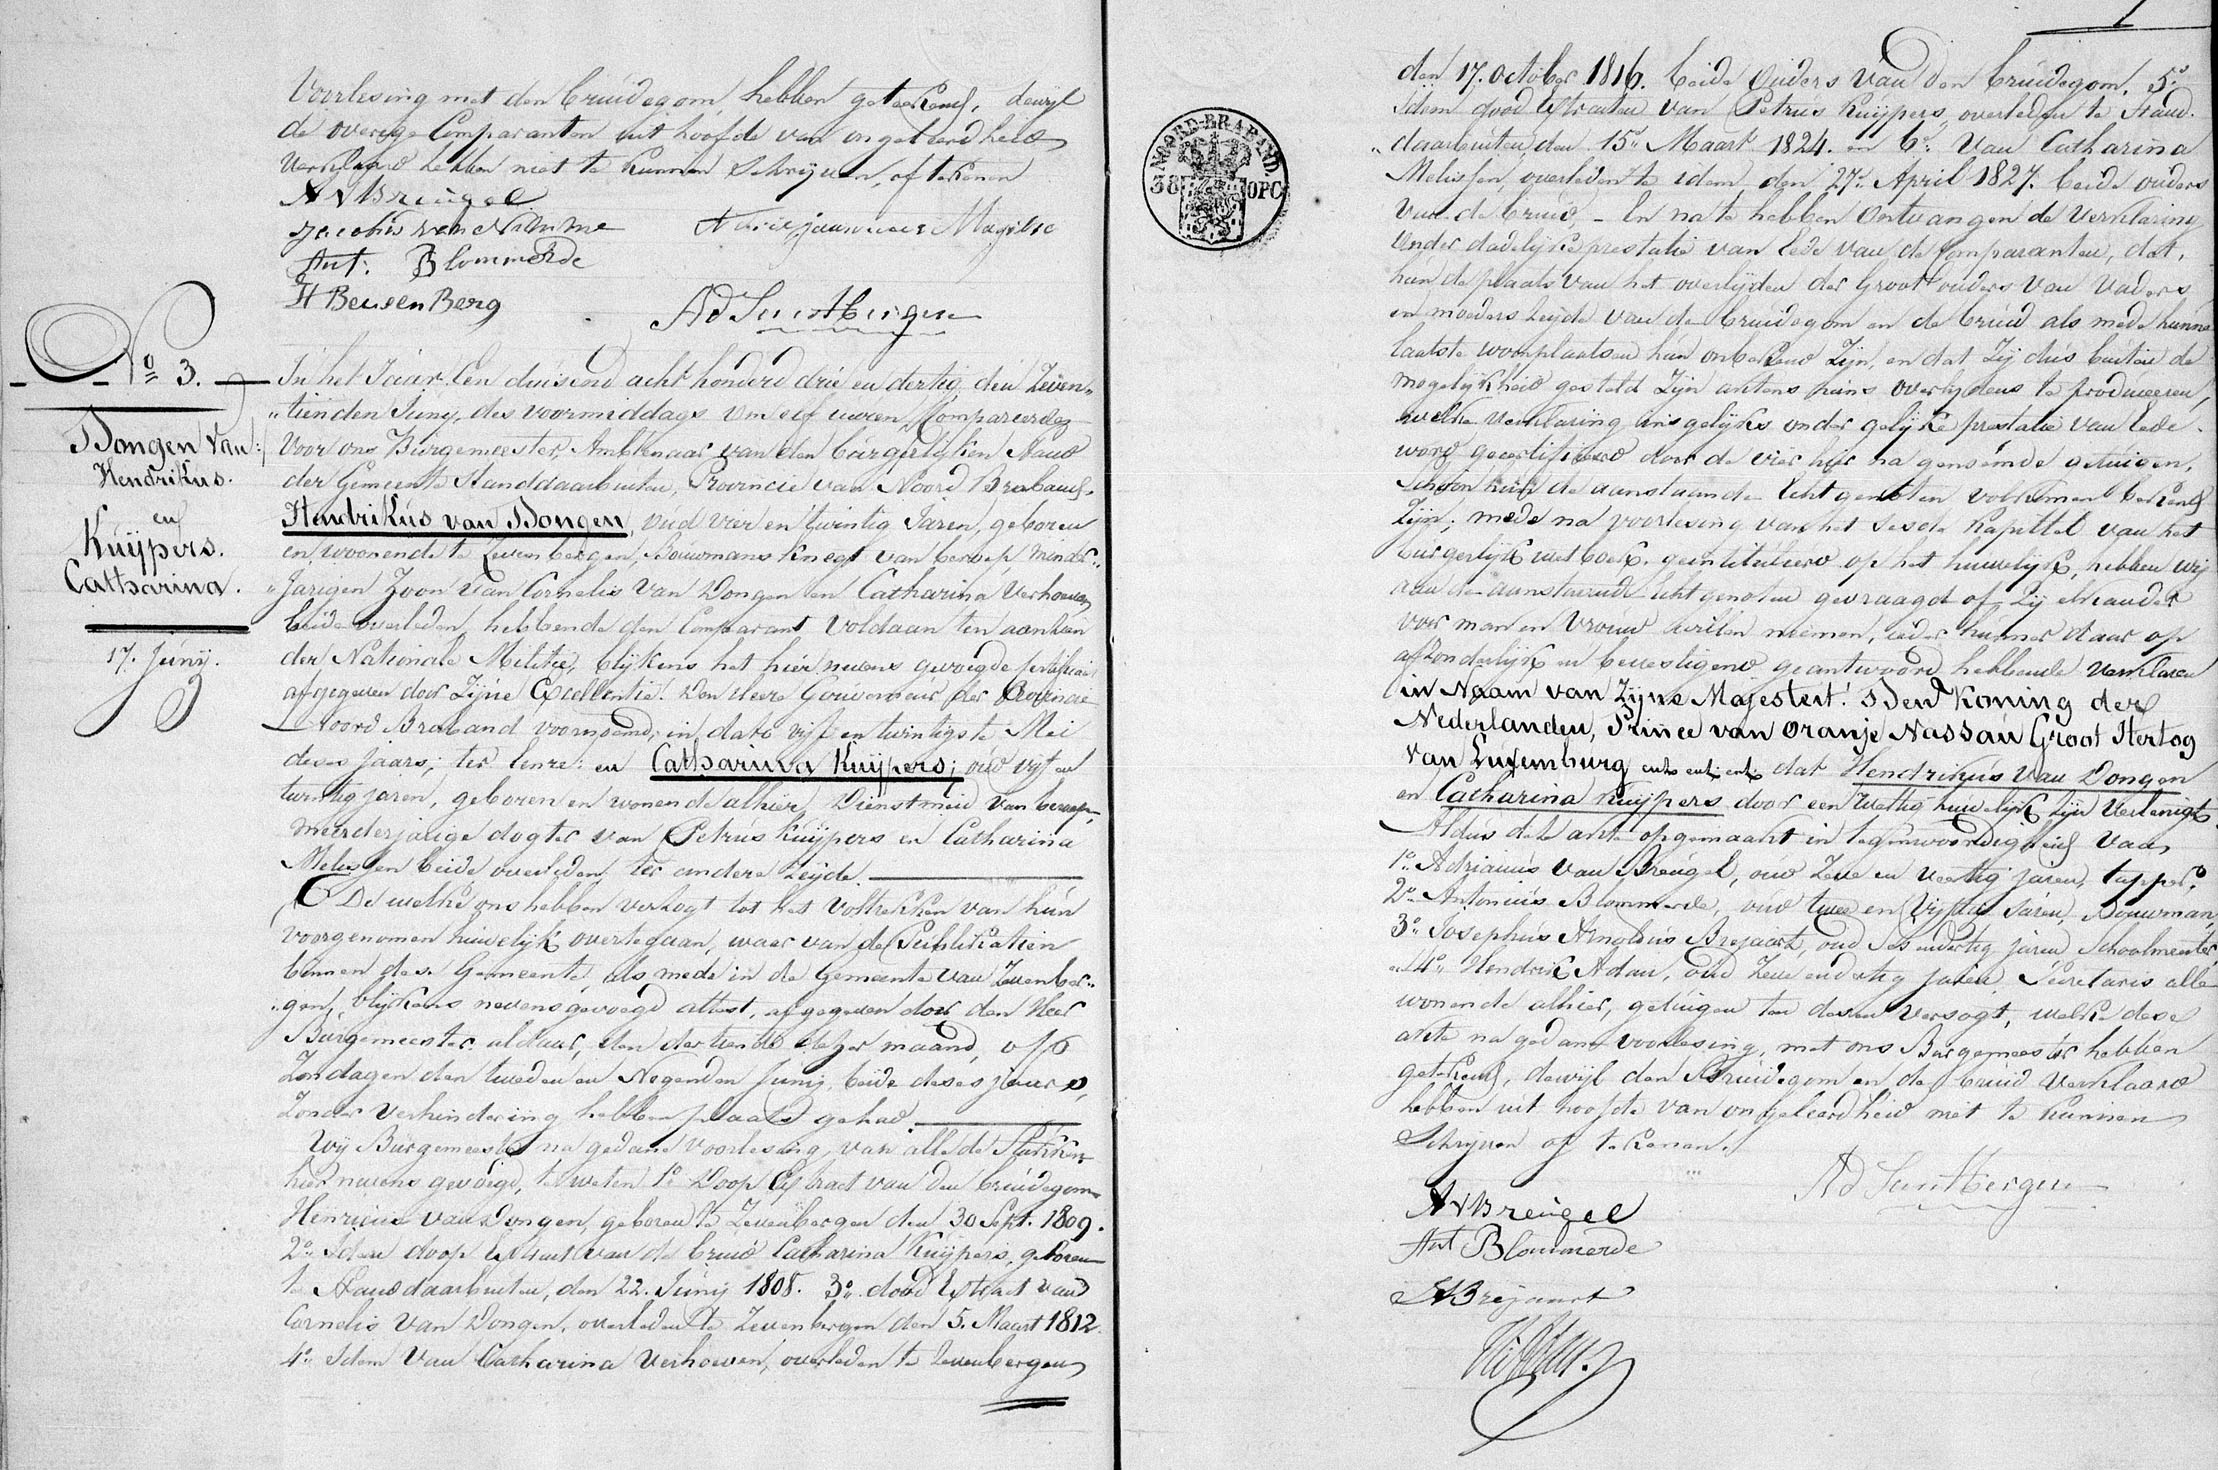 Voorlesing met den bruidegom, hebben getekend, dewyl
de overige Comparanten uit hoofde van ongeleerdheid
verklaard hebben niet te kunnen schrijven, of tekenen
AVBreugel
Jacobus van Nimme
Ant: Blommerde
H BeusenBerg
No 3.
Dongen van
Hendrikus.
en
Kuijpers.
Catharina.
17. Junij.
In het Jaar Een duisend acht honderd drie en dertig, den Zeven-
"tienden Juny, des voormiddags om elf uuren, Compareerden
Voor ons Burgemeester, Ambtenaar van den burgerlyken Stand
der Gemeente Standdaarbuiten, Provincie van Noord Braband,
Hendrikus van Dongen, oud vier en twintig Jaren, geboren
en woonende te Zevenbergen, Bouwmans knegt van beroep, minder-
"Jarigen Zoon van Cornelis van Dongen en Catharina Verhoeven
beide overleden, hebbende den Comparant voldaan ten aanzien
der Nationale Militie, blijkens het hier nevens gevoegde sertificaat
afgegeven door Zijne Excellentie! Den Heere Gouverneur der Provincie
Noord Braband voornoemd, in dato vijf en twintigste Mei
deses jaars; ter eenre: en Catharina Kuijpers; oud vijf en
twintig jaren, geboren en wonende alhier, Dienstmeid van beroep,
meerderjarige dogter van Petrus Kuijpers en Catharina
Melissen beide overleden, ter andere zeyde.
De welke ons hebben verzogt tot het voltrekken van hun
voorgenomen huwelijk overtegaan, waar van de Publikatien
binnen dese Gemeente, als mede in de Gemeente van Zevenber-
"gen, blijkens nevensgevoegd attest, afgegeven door den Heer
Burgemeester aldaar, den dertiende dezer maand, op
Zondagen den tweeden en Negenden Junij, beide deses jaars,
zonder verhindering hebben plaats gehad.
Wij Burgemeester na gedane voorlesing, van alle de Stukken
hier nevens gevoegd, te weten 1o Doop Extract van den bruidegom
Henricus van Dongen, geboren te Zevenbergen den 30 Sept. 1809.
2o Idem doop Extract van de bruid Catharina Kuijpers, geboren
te Standdaarbuiten, den 22. Junij 1808. 3o dood Extract van
Cornelis van Dongen, overleden te Zevenbergen den 5. Maart 1812.
4o Idem van Catharina Verhoeven, overleden te Zevenbergen
NOORD-BRABAND
38 OPC
den 17. october 1816. beide Ouders van den bruidegom. 5o
Idem dood Extracten van Petrus Kuijpers, overleden te Stand-
"daarbuiten, den 15n Maart 1824. en 6o. van Catharina
Melissen, overleden te idem den 27n April 1827. beide ouders
van de bruid - En na te hebben ontvangen de verklaring
onder dadelijke prestatie van Eede van de Comparanten, dat,
hun de plaats van het overlijden der Grootouders van vaders
en moeders zeyde van de bruidegom en de bruid als mede hunne
laatste woonplaatsen hun onbekend zijn, en dat zij dus buiten de
mogelijkheid gesteld zijn actens huns overlydens te produceeren,
welke verklaring insgelijks onder gelijke prestatie van Eede
word gecertifieerd door de vier hier na genoemde getuigen,
schoon hun de aanstaande Echtgenoten volkomen bekend
zijn; mede na voorlesing van het sesde kapittel van het
burgerlijk wetboek, geintituleerd op het huwelijk, hebben wij
aan de aanstaande Echtgenoten gevraagd of zij elkander
voor man en vrouw willen nemen, ieder hunner daar op
afzonderlijk en bevestigend geantwoord hebbende verklaren
in Naam van Zijne Majesteit! Den Koning der
Nederlanden, Prince van Oranje Nassau Groot Hertog
van Luxemburg entz entz entz dat Hendrikus van Dongen
en Catharina Kuijpers door een wettig huwelijk zijn vereenigt.
Aldus dele acte opgemaakt in tegenwoordigheid van
1o Adrianus van Breugel, oud zeve en veertig jaren, tapper,
2o Antonius Blommerde, oud twee en vijftig Jaren, Bouwman,
3o Josephus Arnoldus Brejaart, oud ses en dertig jaren, Schoolmeester
en 4o Hendrik Adan, oud zeve en dertig jaren, Secretaris alle
wonende alhier, getuigen ten desen versogt, welke dese
akte na gedane voorlesing, met ons Burgemeester hebben
getekend, dewijl den Bruidegom en de bruid verklaard
hebben uit hoofde van ongeleerdheid niet te kunnen
schrijven of tekenen.
AVBreugel
Ant Blommerde